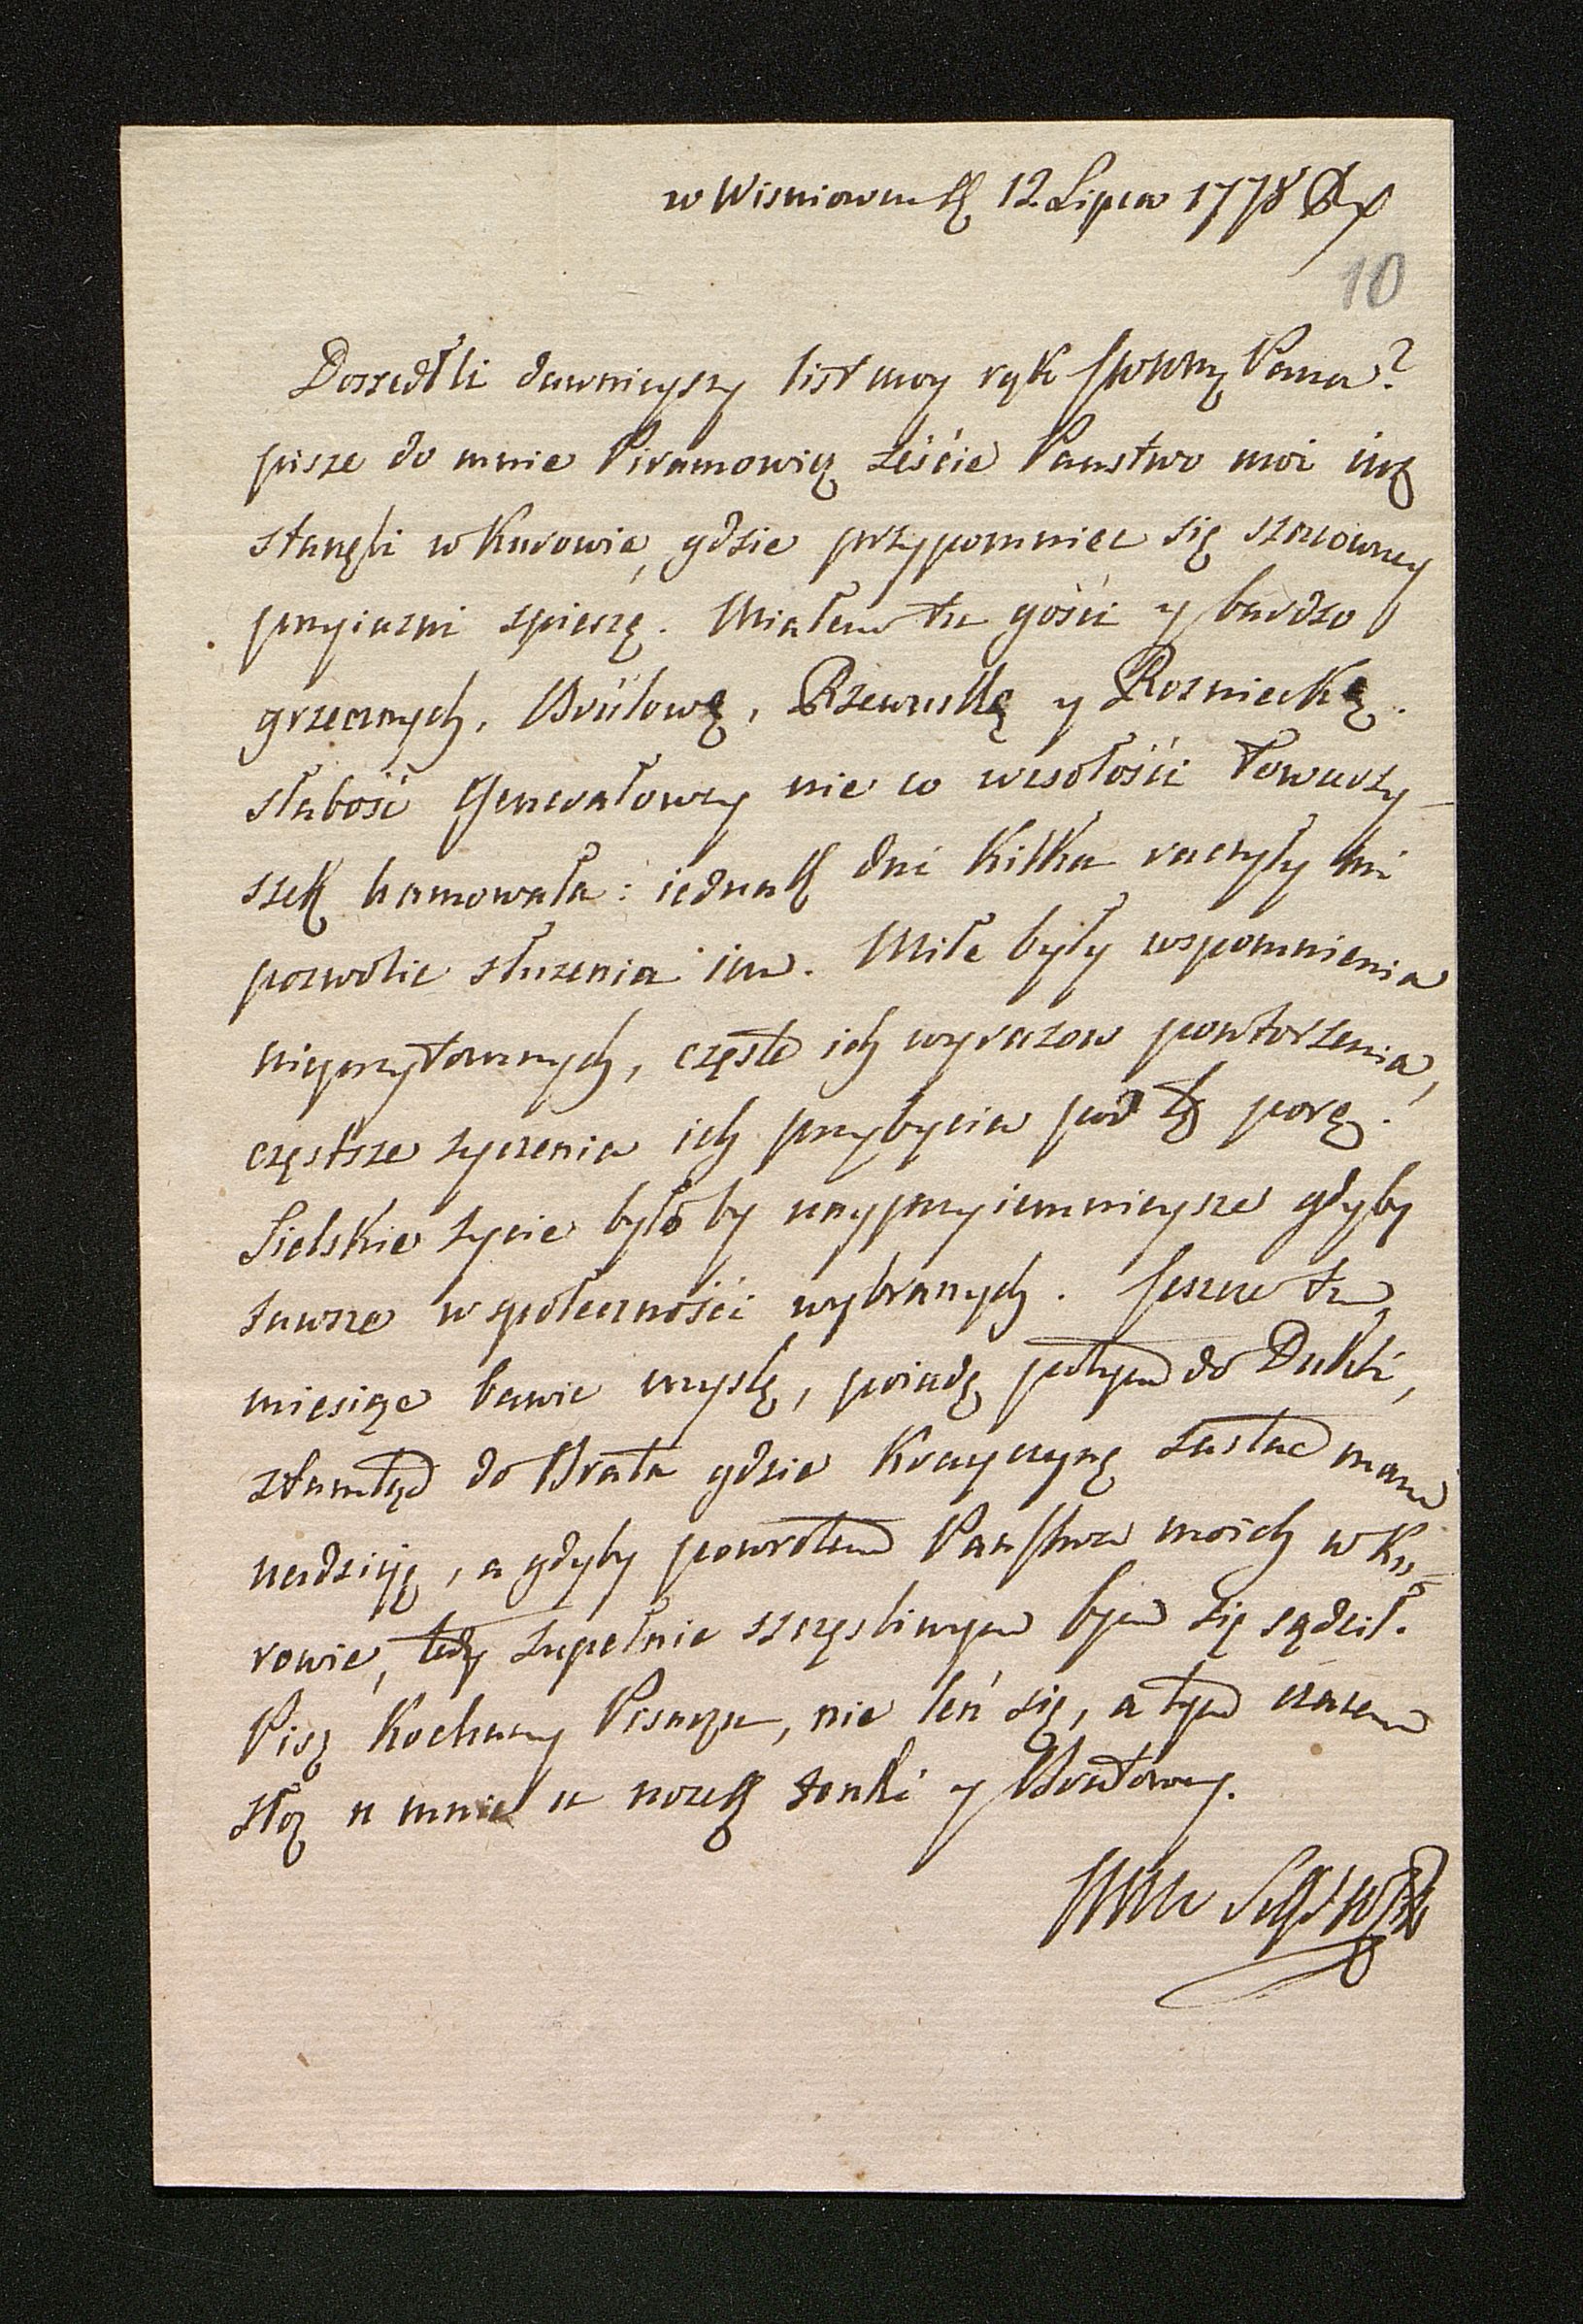 w Wisniowcu 12 Lipca 1778
10
Doszedłli dawnieyszy list moy rąk Pana?
pisze do mnie Piramowicz żeście Państwo moi iuż
stanęli w Kurowie, gdzie przypomniec się szacowney
przyiazni spieszę. Miałem tu gości y bardzo
grzecznych, Brülową, Rzewuską y Rozniecką.
słabość Generałowey nie co wesołości Towarzy-
szek hamowała: iednak dni kilka raczyły mi
pozwolic służenia im. Miłe były wspomnienia
nieprzytomnych, częste ich wyrazow powtorzenia,
częstsze zyczenia ich przybycia pod tę porę.
Sielskie zycie było by nayprzyiemnieysze gdyby
zawsze w społeczności wybranych. Jeszcze tu
miesiąc bawic myslę, poiadę potym do Dukli,
ztamtąd do Brata gdzie Krayczynę zastac mam
nadzieię, a gdyby powrotem Państwa moich w Ku=
rowie, tedy zupełnie szczęsliwym bym się sądził.
Pisz Kochany Pisarzu, nie leń się, a tym czasem
złoż u mnie u nozek żonki y Bratowey.